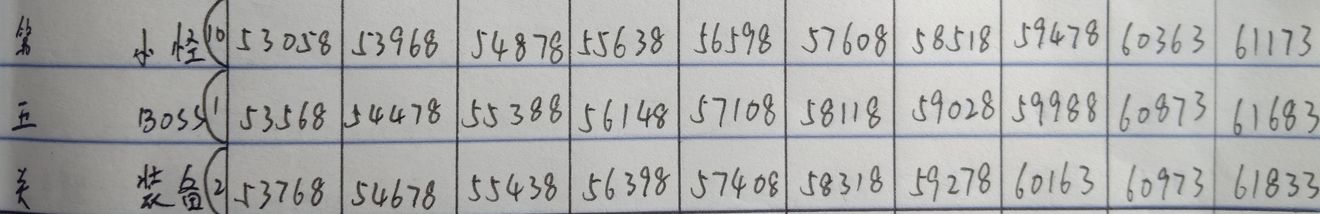 第 小怪(10 53058 53968 54878 55638 56598 57608 58518 59478 60363 61173
五 Boss(1 53568 54478 55388 56148 57108 58118 59028 59988 60873 61683
关 装备(2 53768 54678 55438 56398 57408 58318 59278 60163 60973 61833